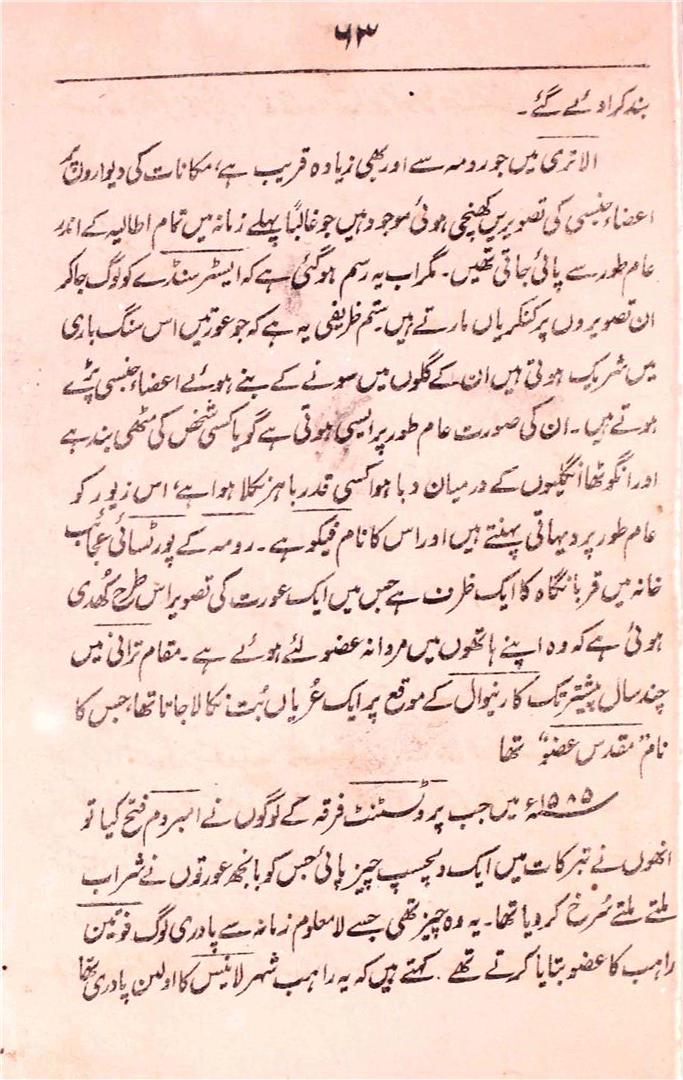 ۶۳
بند کرا دئے گئے۔
الاتری میں جو رومہ سے اور بھی زیادہ قریب ہے، مکانات کی دیواروں پر
اعضاء جنسی کی تصویریں کھنچی ہوئی موجود ہیں جو غالباً پہلے زمانہ میں تمام اطالیہ کے اندر
عام طور سے پائی جاتی تھیں۔ مگر اب یہ رسم ہوگئی ہے کہ ایسٹر سنڈے کو لوگ جاکر
ان تصویروں پر کنکریاں مارتے ہیں۔ ستم ظریفی یہ ہے کہ جو عورتیں اس سنگ باری
میں شریک ہوتی ہیں ان کے گلوں میں سونے کے بنے ہوئے اعضاء جنسی پڑے
ہوتے ہیں۔ ان کی صورت عام طور پر ایسی ہوتی ہے گویا کسی شخص کی مٹھی بند ہے
اور انگوٹھا انگلیوں کے درمیان دبا ہوا کسی قدر باہر نکلا ہوا ہے، اس زیور کو
عام طور پر دیہاتی پہنتے ہیں اور اس کا نام فیکو ہے۔ رومہ کے پورٹسائی عجائب
خانہ میں قربانگاہ کا ایک ظرف ہے جس میں ایک عورت کی تصویر اس طرح کھدی
ہوئی ہے کہ وہ اپنے ہاتھوں میں مردانہ عضو لئے ہوئے ہے۔ مقام ترانی میں
چند سال پیشتر تک کارنیوال کے موقع پر ایک عُریاں بُت نکالا جاتا تھا، جس کا
نام "مقدس عضو" تھا
۱۵۸۵ء میں جب پروٹسٹنٹ فرقہ کے لوگوں نے امبروم فتح کیا تو
انھوں نے تبرکات میں ایک دلچسپ چیز پائی جس کو بانجھ عورتوں نے شراب
ملتے ملتے سُرخ کردیا تھا۔ یہ وہ چیز تھی جسے لا معلوم زمانہ سے پادری لوگ فوتین
راہب کا عضو بتایا کرتے تھے۔ کہتے ہیں کہ یہ راہب شہر لائنس کا اولین پادری تھا